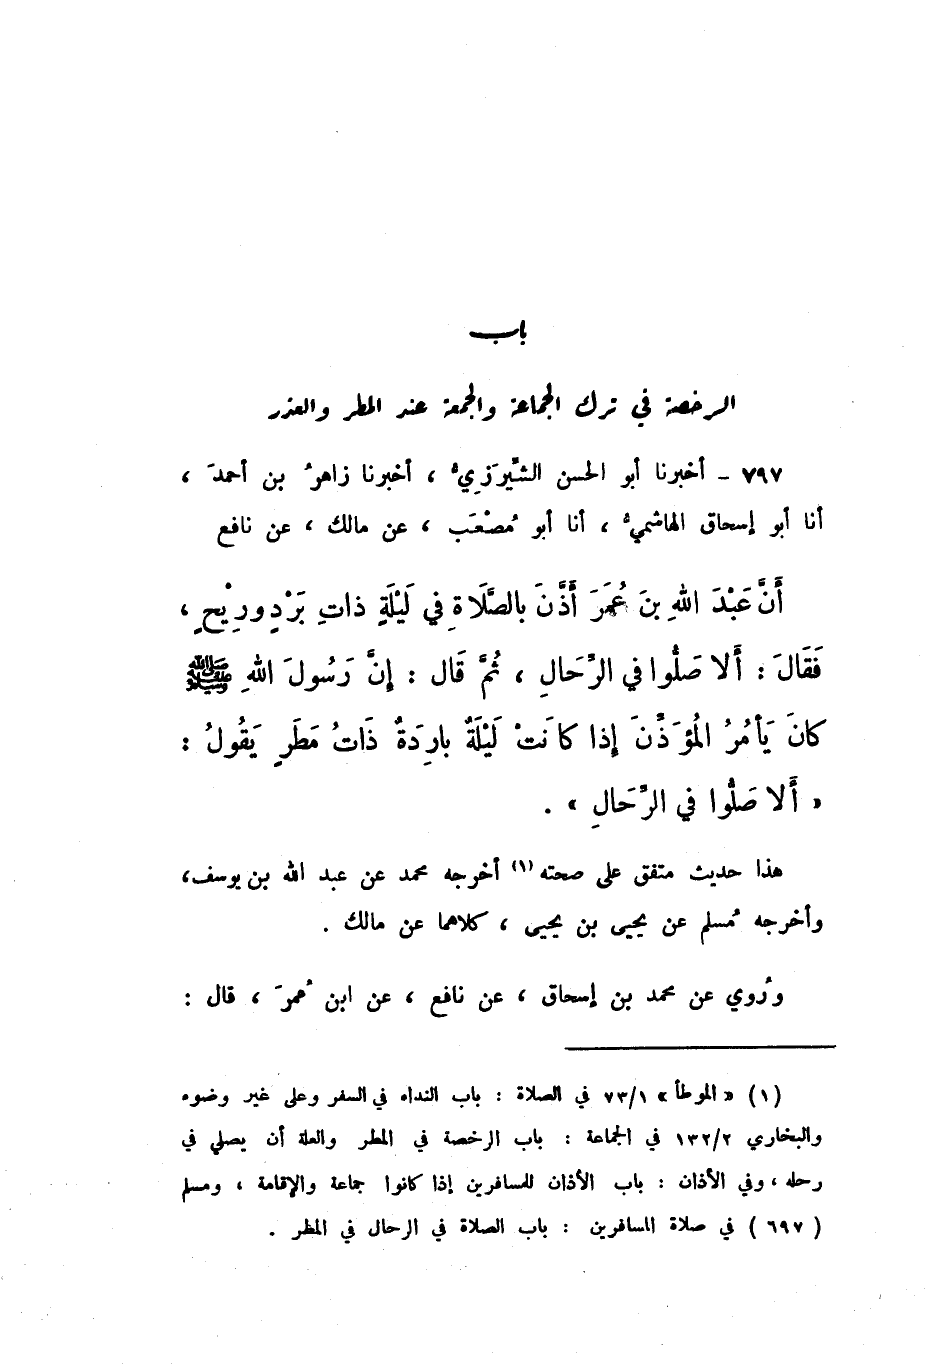 باب
الرخصة في ترك الجماعة والجمعة عند المطر والعذر
٧٩٧ – أخبرنا أبو الحسن الشِّيرَزِيُّ ، أخبرنا زاهرُ بن أحمدَ ،
أنا أبو إسحاق الهاشميُّ ، أنا أبو مُصْعَب ، عن مالك ، عن نافع
أَنَّ عَبْدَ اللهِ بنَ عُمَرَ أَذَّنَ بالصَّلَاةِ في لَيْلَةٍ ذاتِ بَرْدٍ ورِيْحٍ ،
فَقَالَ : أَلا صَلُّوا في الرِّحَالِ ، ثُمَّ قَال : إِنَّ رَسُولَ اللهِ ﷺ
كانَ يَأمُرُ المُؤَذِّنَ إذا كانَتْ لَيْلَةٌ بارِدَةٌ ذَاتُ مَطَرٍ يَقُولُ :
« أَلا صَلُّوا في الرِّحَالِ » .
هذا حديث متفق على صحته (١) أخرجه محمد عن عبد الله بن يوسف،
وأخرجه مُسلم عن يحيى بن يحيى ، كلاهما عن مالك .
ورُوي عن محمد بن إسحاق ، عن نافع ، عن ابن عُمرَ ، قال :
(١) « الموطأ » ٧٣/١ في الصلاة : باب النداء في السفر وعلى غير وضوء
والبخاري ١٣٢/٢ في الجماعة : باب الرخصة في المطر والعلة أن يصلي في
رحله ، وفي الأذان : باب الأذان للمسافرين إذا كانوا جماعة والإقامة ، ومسلم
( ٦٩٧ ) في صلاة المسافرين : باب الصلاة في الرحال في المطر .